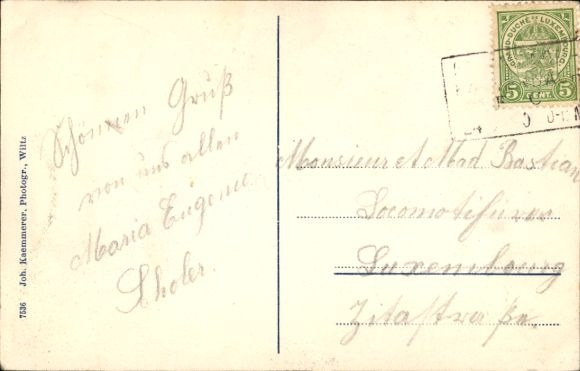 Schönnen Gruß
von uns allen
Maria Eugenie
Sholer.
7536 Joh. Kaemmerer, Photogr., Wiltz
GRAND-DUCHÉ DE LUXEMBOURG
5 CENT. 5
Monsieur et Mad Bastian
Locomotifürer
Luxembourg
Zitastraße.